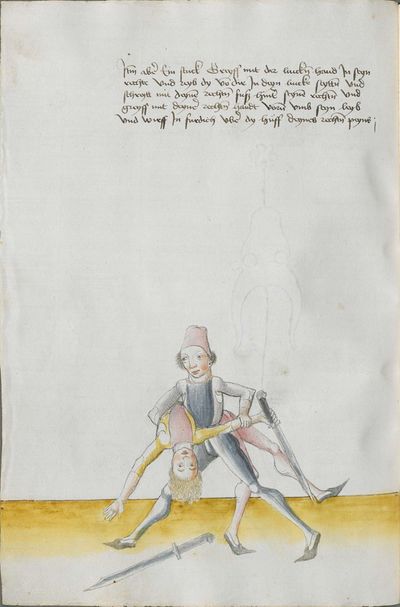 Itm̅ aber Ein stuck Greyff mit der lincken hand In seyn
rechte Und reyb dy vo dir In deyn lincke seytten Und
schreytt mit deyne rechten fuss hint seyne rechten Und
greyff mit deyne rechten handt vorn vmb seyn leyb
Und wirff In fur dich vber dy hüff deynes rechten peyns